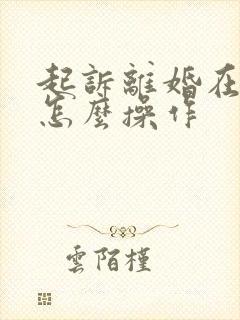 起訴離婚在
怎麼操作
雲陌槿